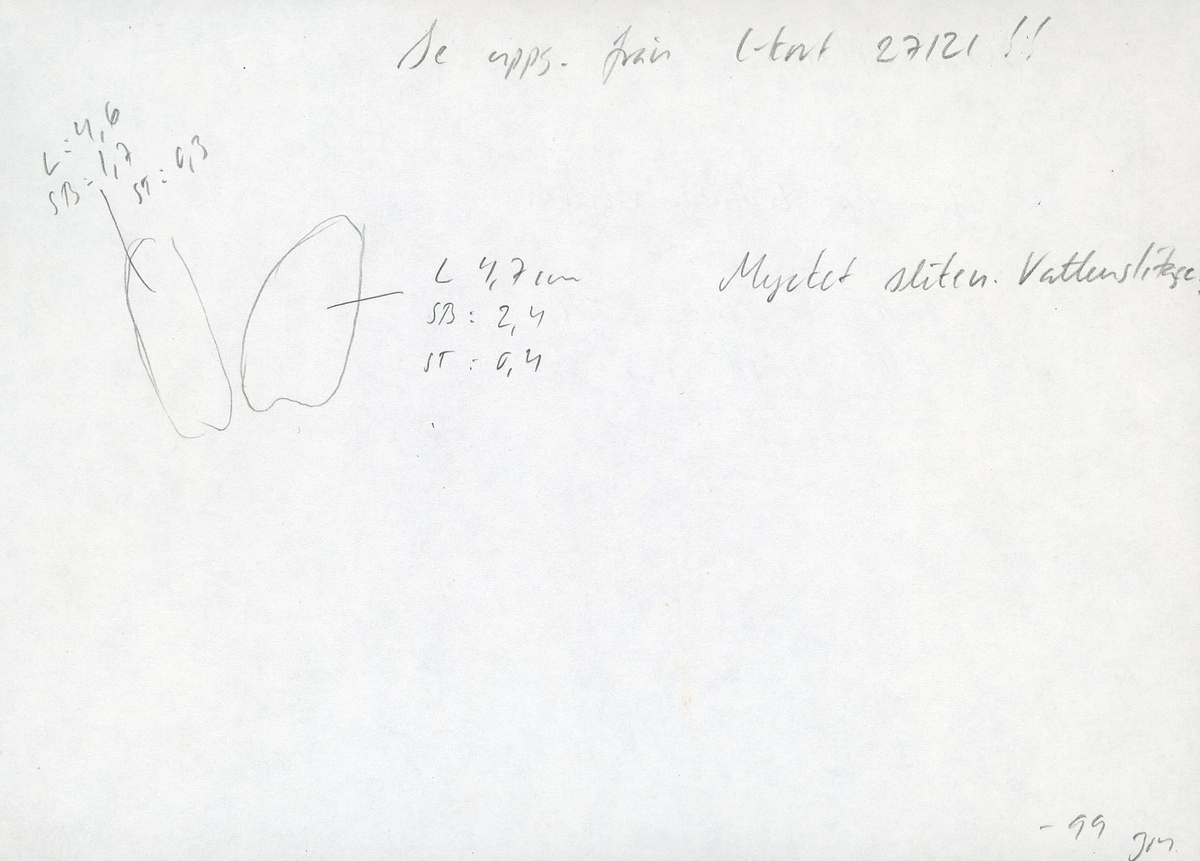 Se upps. från L-kort 27121 !!
L: 4,6
SB: 1,7
ST: 0,3
L 4,7 cm
SB: 2,4
ST: 0,4
Mycket sliten. Vattenslitage.
-99